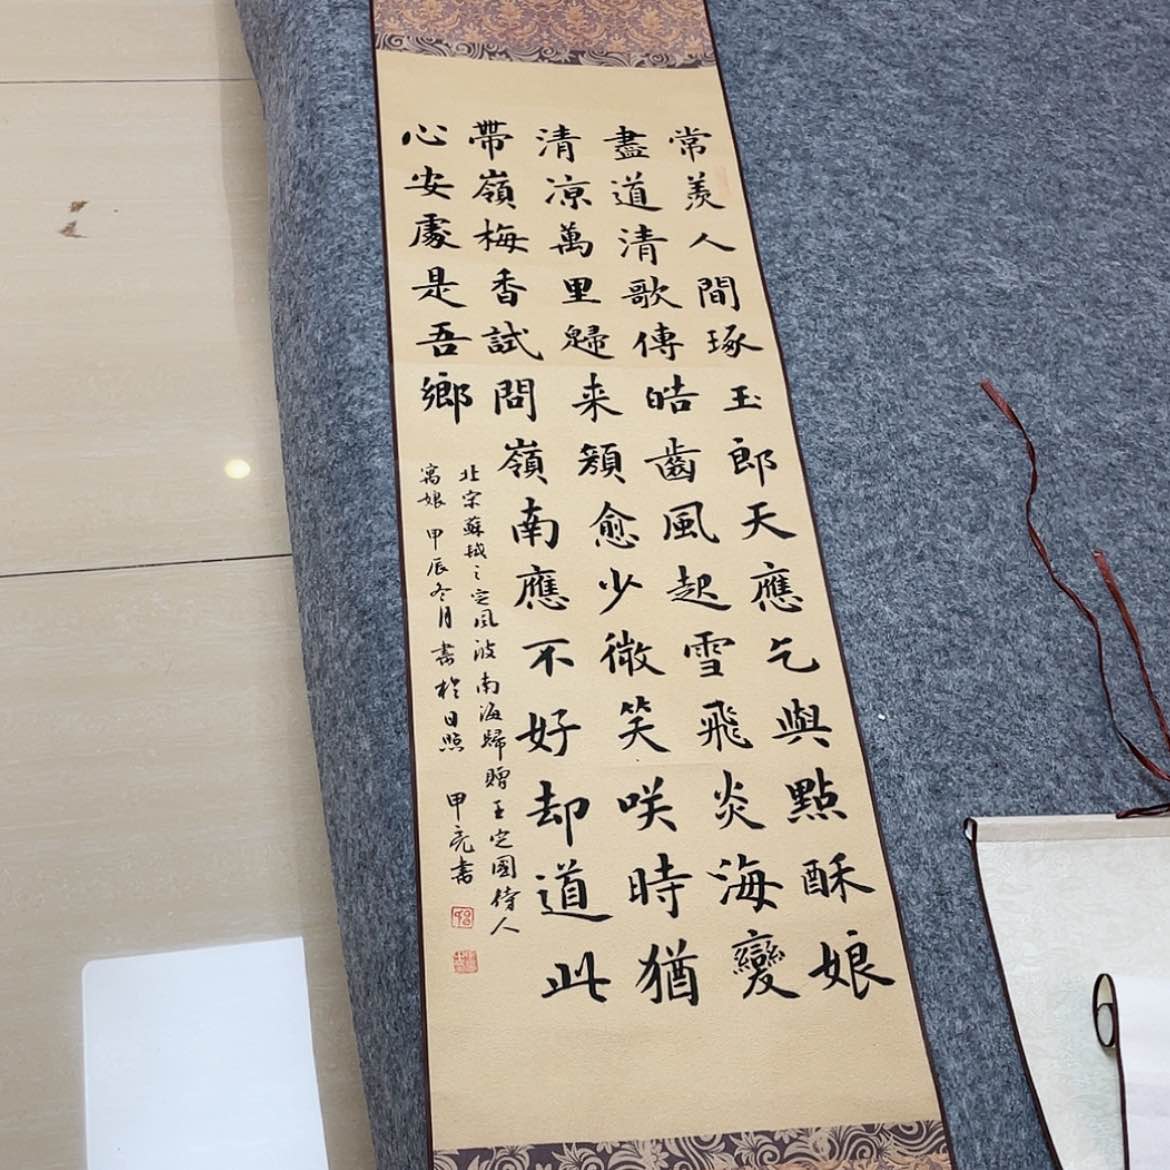 常羨人間琢玉郎天應乞與點酥娘
盡道清歌傳皓齒風起雪飛炎海變
清凉萬里歸来頟愈少微笑笑時猶
帶嶺梅香試問嶺南應不好却道此
心安處是吾鄉
北宋蘇軾之定風波南海歸贈王定國侍人
寓娘 甲辰冬月書於日照 甲亮書